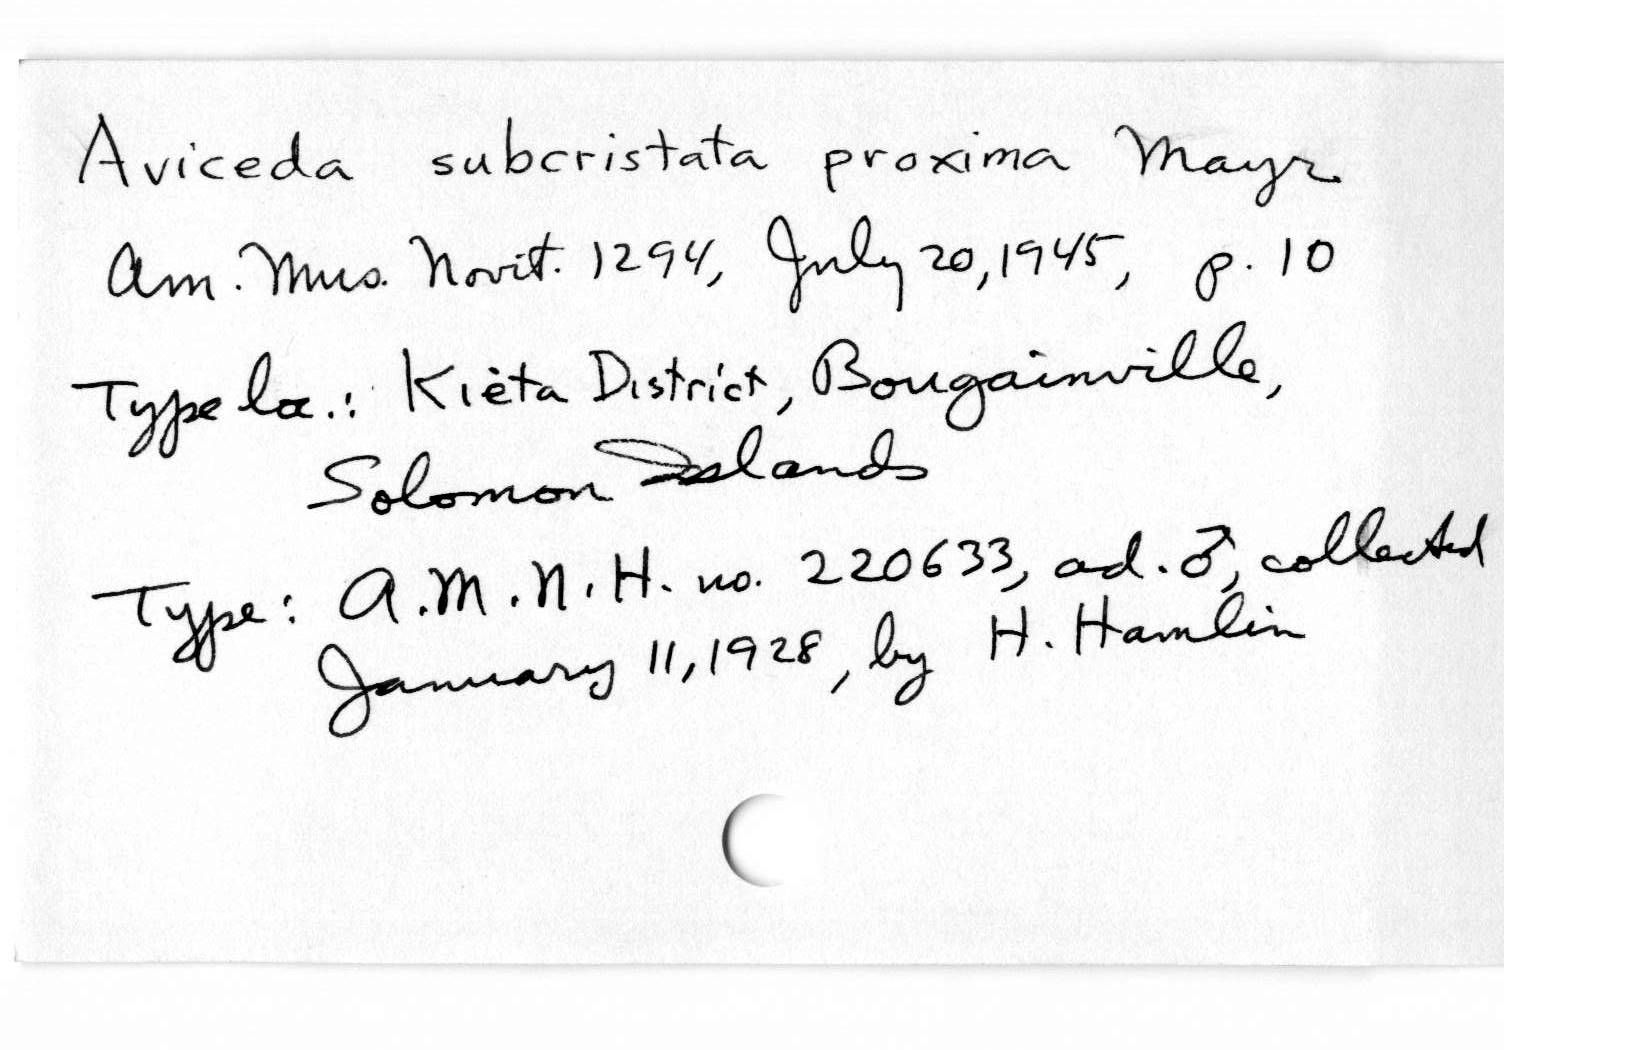 Aviceda subcristata proxima Mayr
Am. Mus. Novit. 1294, July 20, 1945, p. 10
Type loc.: Kièta District, Bougainville,
Solomon Islands
Type: A.M.N.H. no. 220633, ad. ♂, collected
January 11, 1928, by H. Hamlin